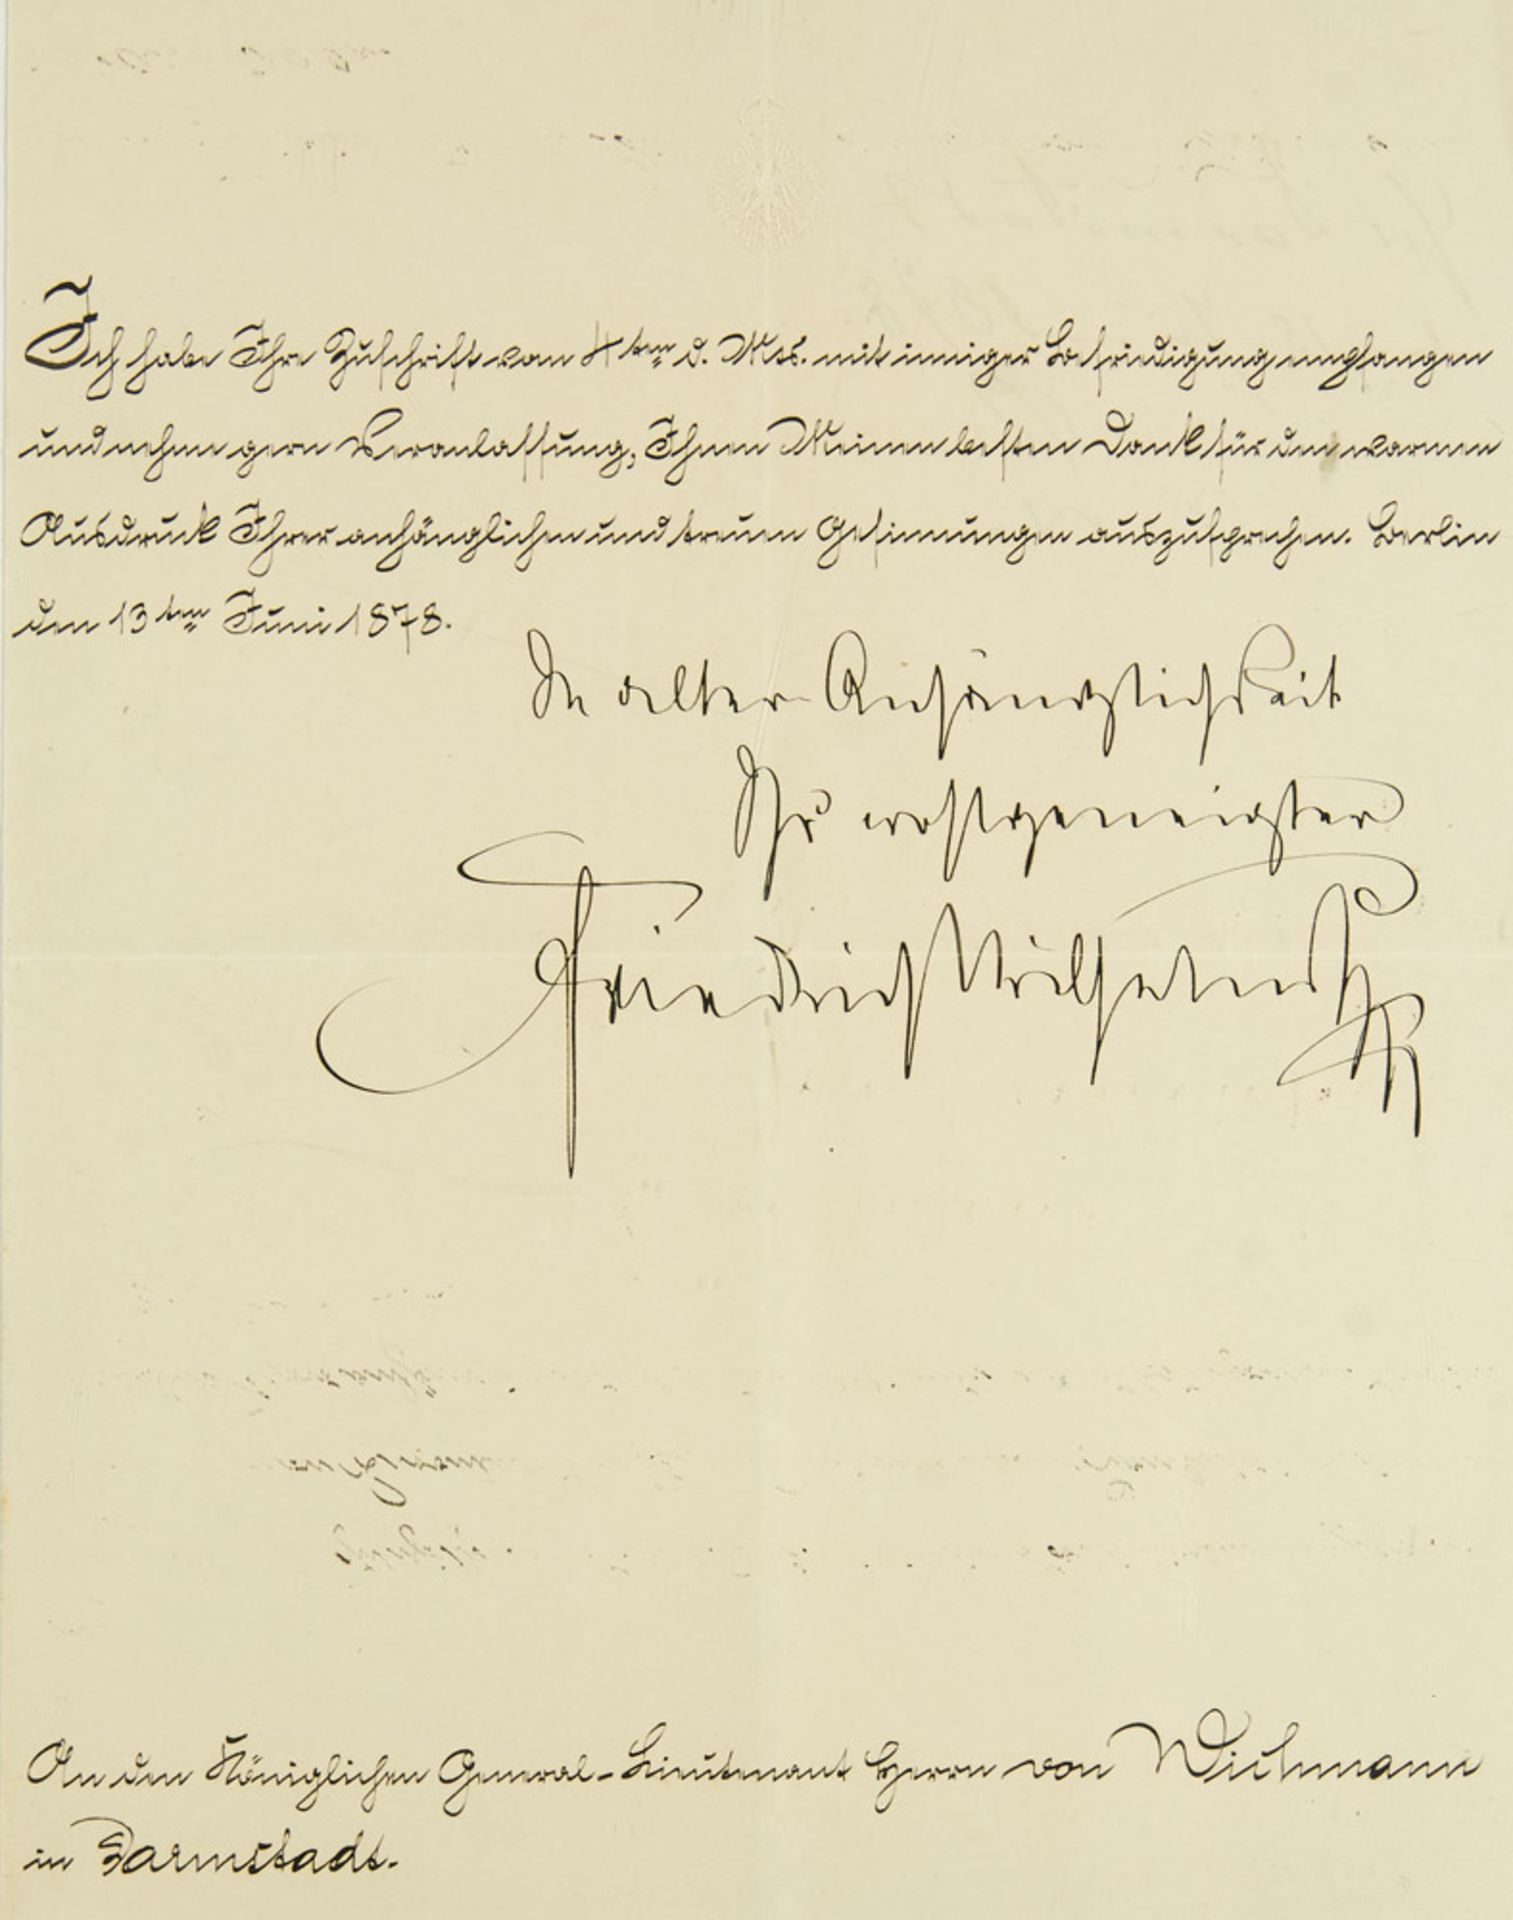 Ich habe Ihre Zuschrift vom 4ten d. Mts. mit inniger Befriedigung empfangen
und nehme gern Veranlassung, Ihnen Meinen besten Dank für den warmen
Ausdruck Ihrer anhänglichen und treuen Gesinnungen auszusprechen. Berlin
den 13ten Juni 1878.
In alter Anhänglichkeit
Ihr wohlgeneigter
Friedrich Wilhelm
An den Königlichen General-Lieutenant Herrn von Wichmann
in Darmstadt.